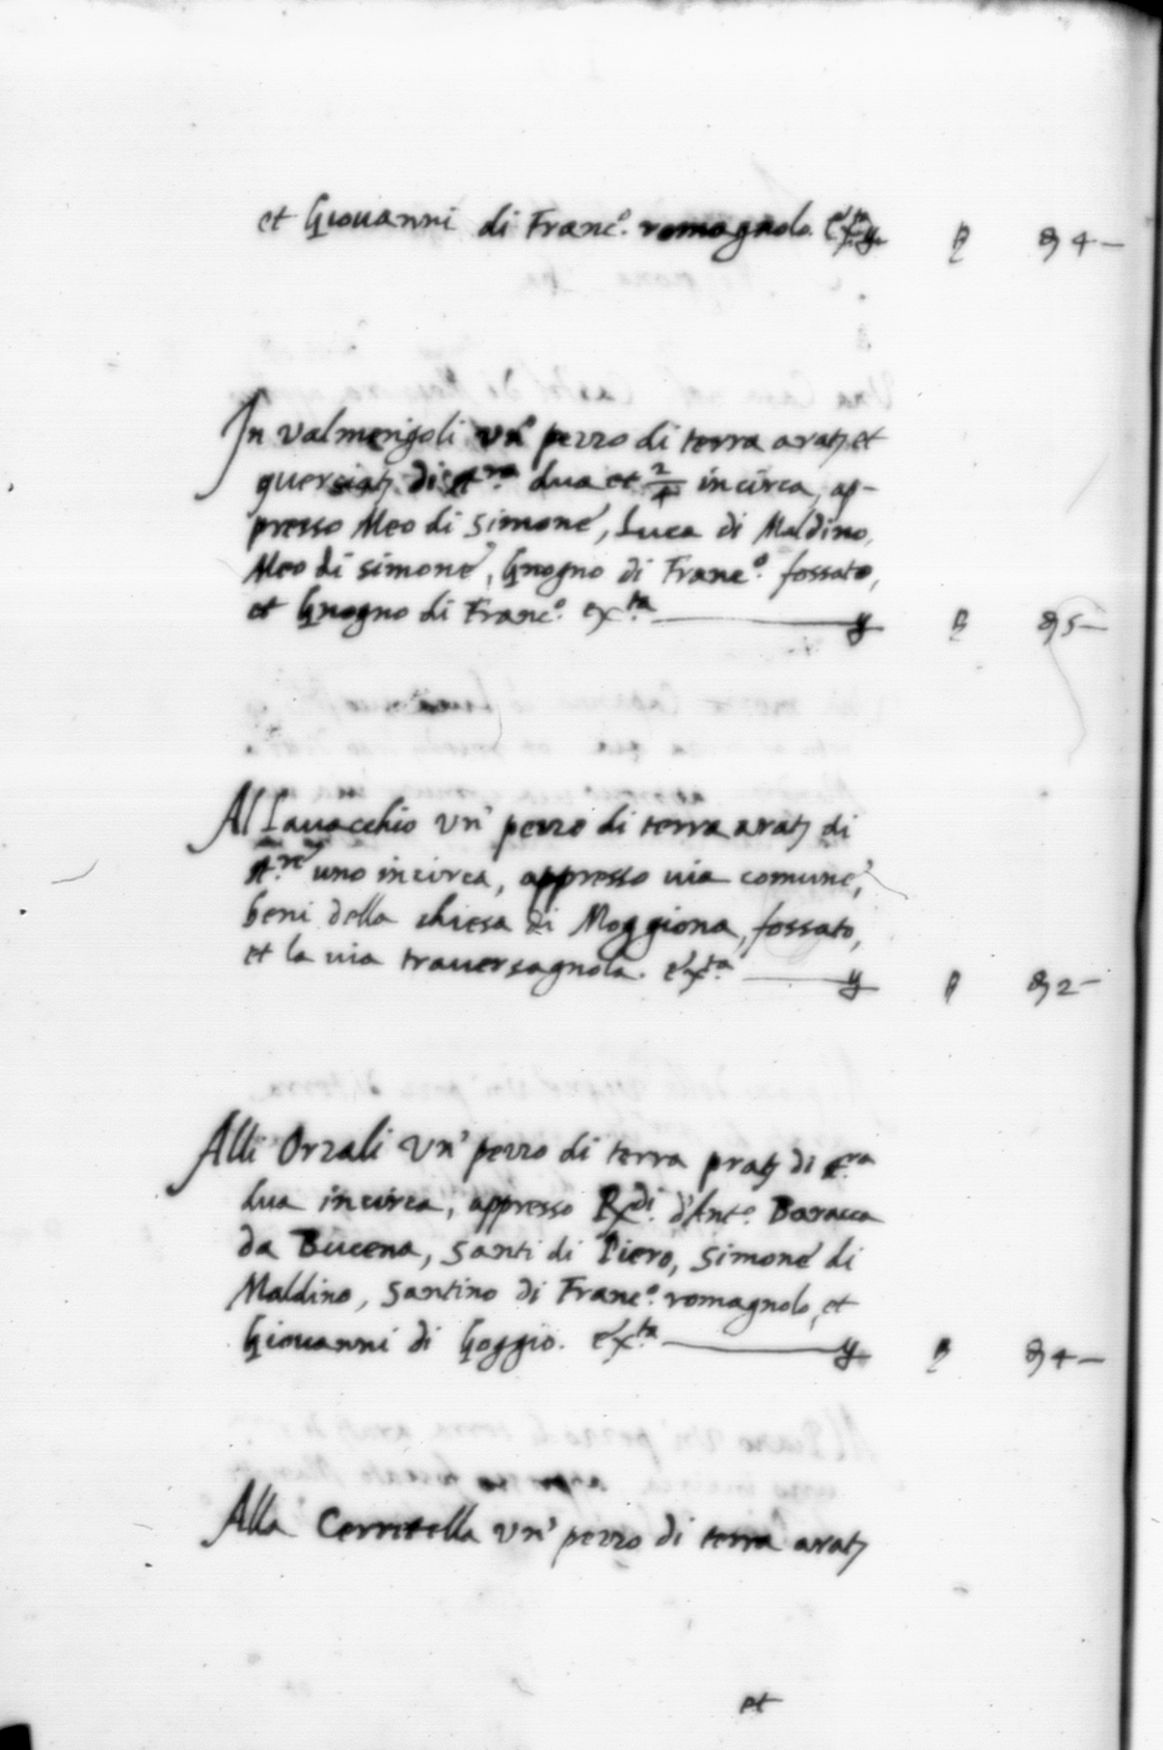 et Giouanni di Franc.o romagnolo. &x.ta y
In valmerigoli vn' pezzo di terra arat. et
querciat. di st.ra dua et 2/4 incirca, ap-
presso Meo di Simone, Luca di Maldino,
Meo di simone, Gnogno di Franc.o fossato,
et Gnogno di Franc.o &x.ta y 5 —
Al Lauacchio vn' pezzo di terra arat. di
st.ro uno incirca, appresso uia comune,
beni della chiesa di Moggiona, fossato,
et la uia trauersagnola. &x.ta y 2 —
Alli Orzali vn' pezzo di terra prat. di st.ra
dua incirca, appresso Rx.di d'Ant.o Baracca
da Bucena, Santi di Piero, Simone di
Maldino, Santino di Franc.o romagnolo, et
Giouanni di Goggio. &x.ta y 4 —
Alla Cerretella vn' pezzo di terra arat.
et